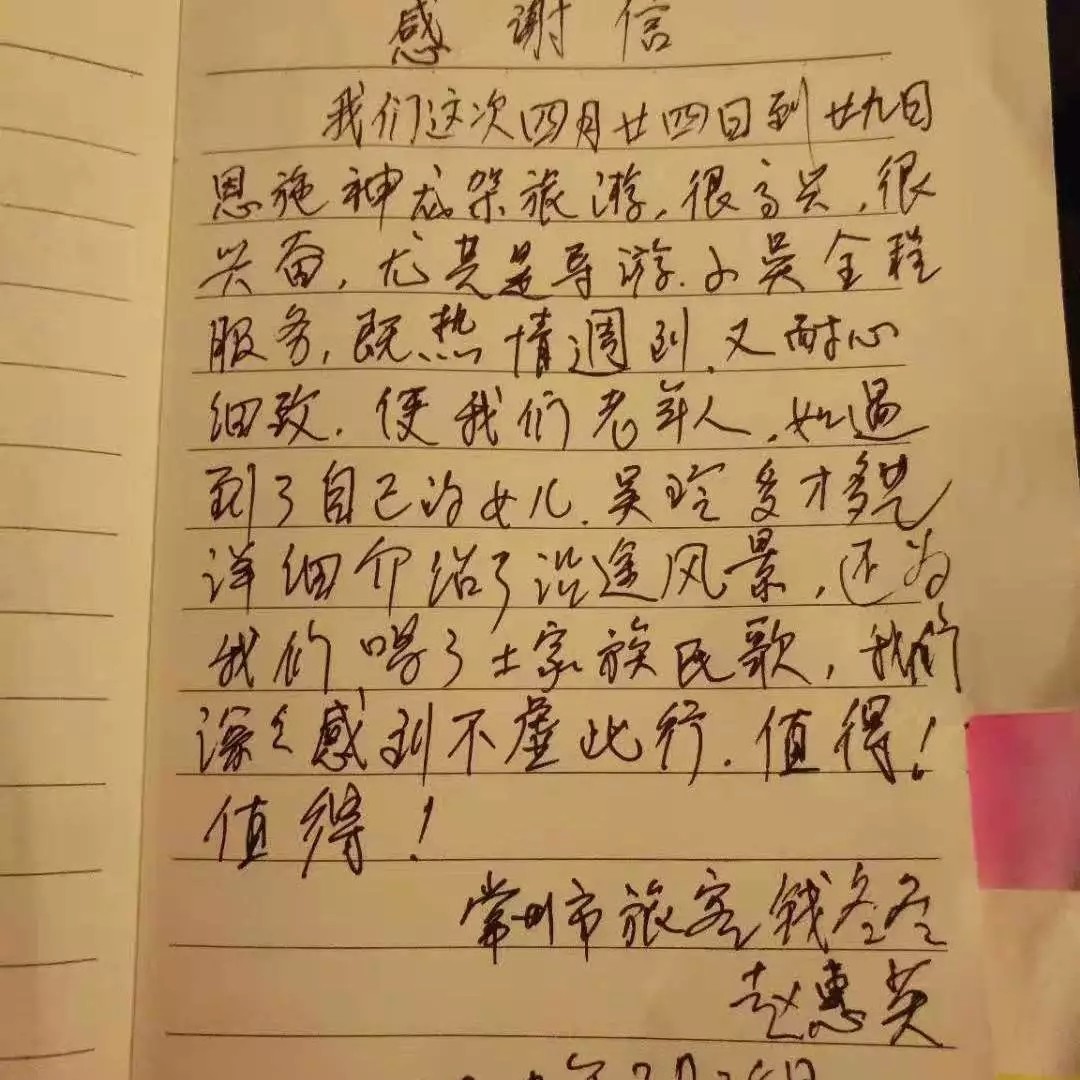 感谢信
我们这次四月廿四日到廿九日
恩施神农架旅游，很高兴，很
兴奋，尤其是导游小吴全程
服务，既热情週到，又耐心
细致，使我们老年人，如遇
到了自己的女儿．吴玲多才多艺
详细介绍了沿途风景，还为
我们唱了土家族民歌，我们
深深感到不虚此行．值得！
值得！
常州市旅客 钱
赵惠英